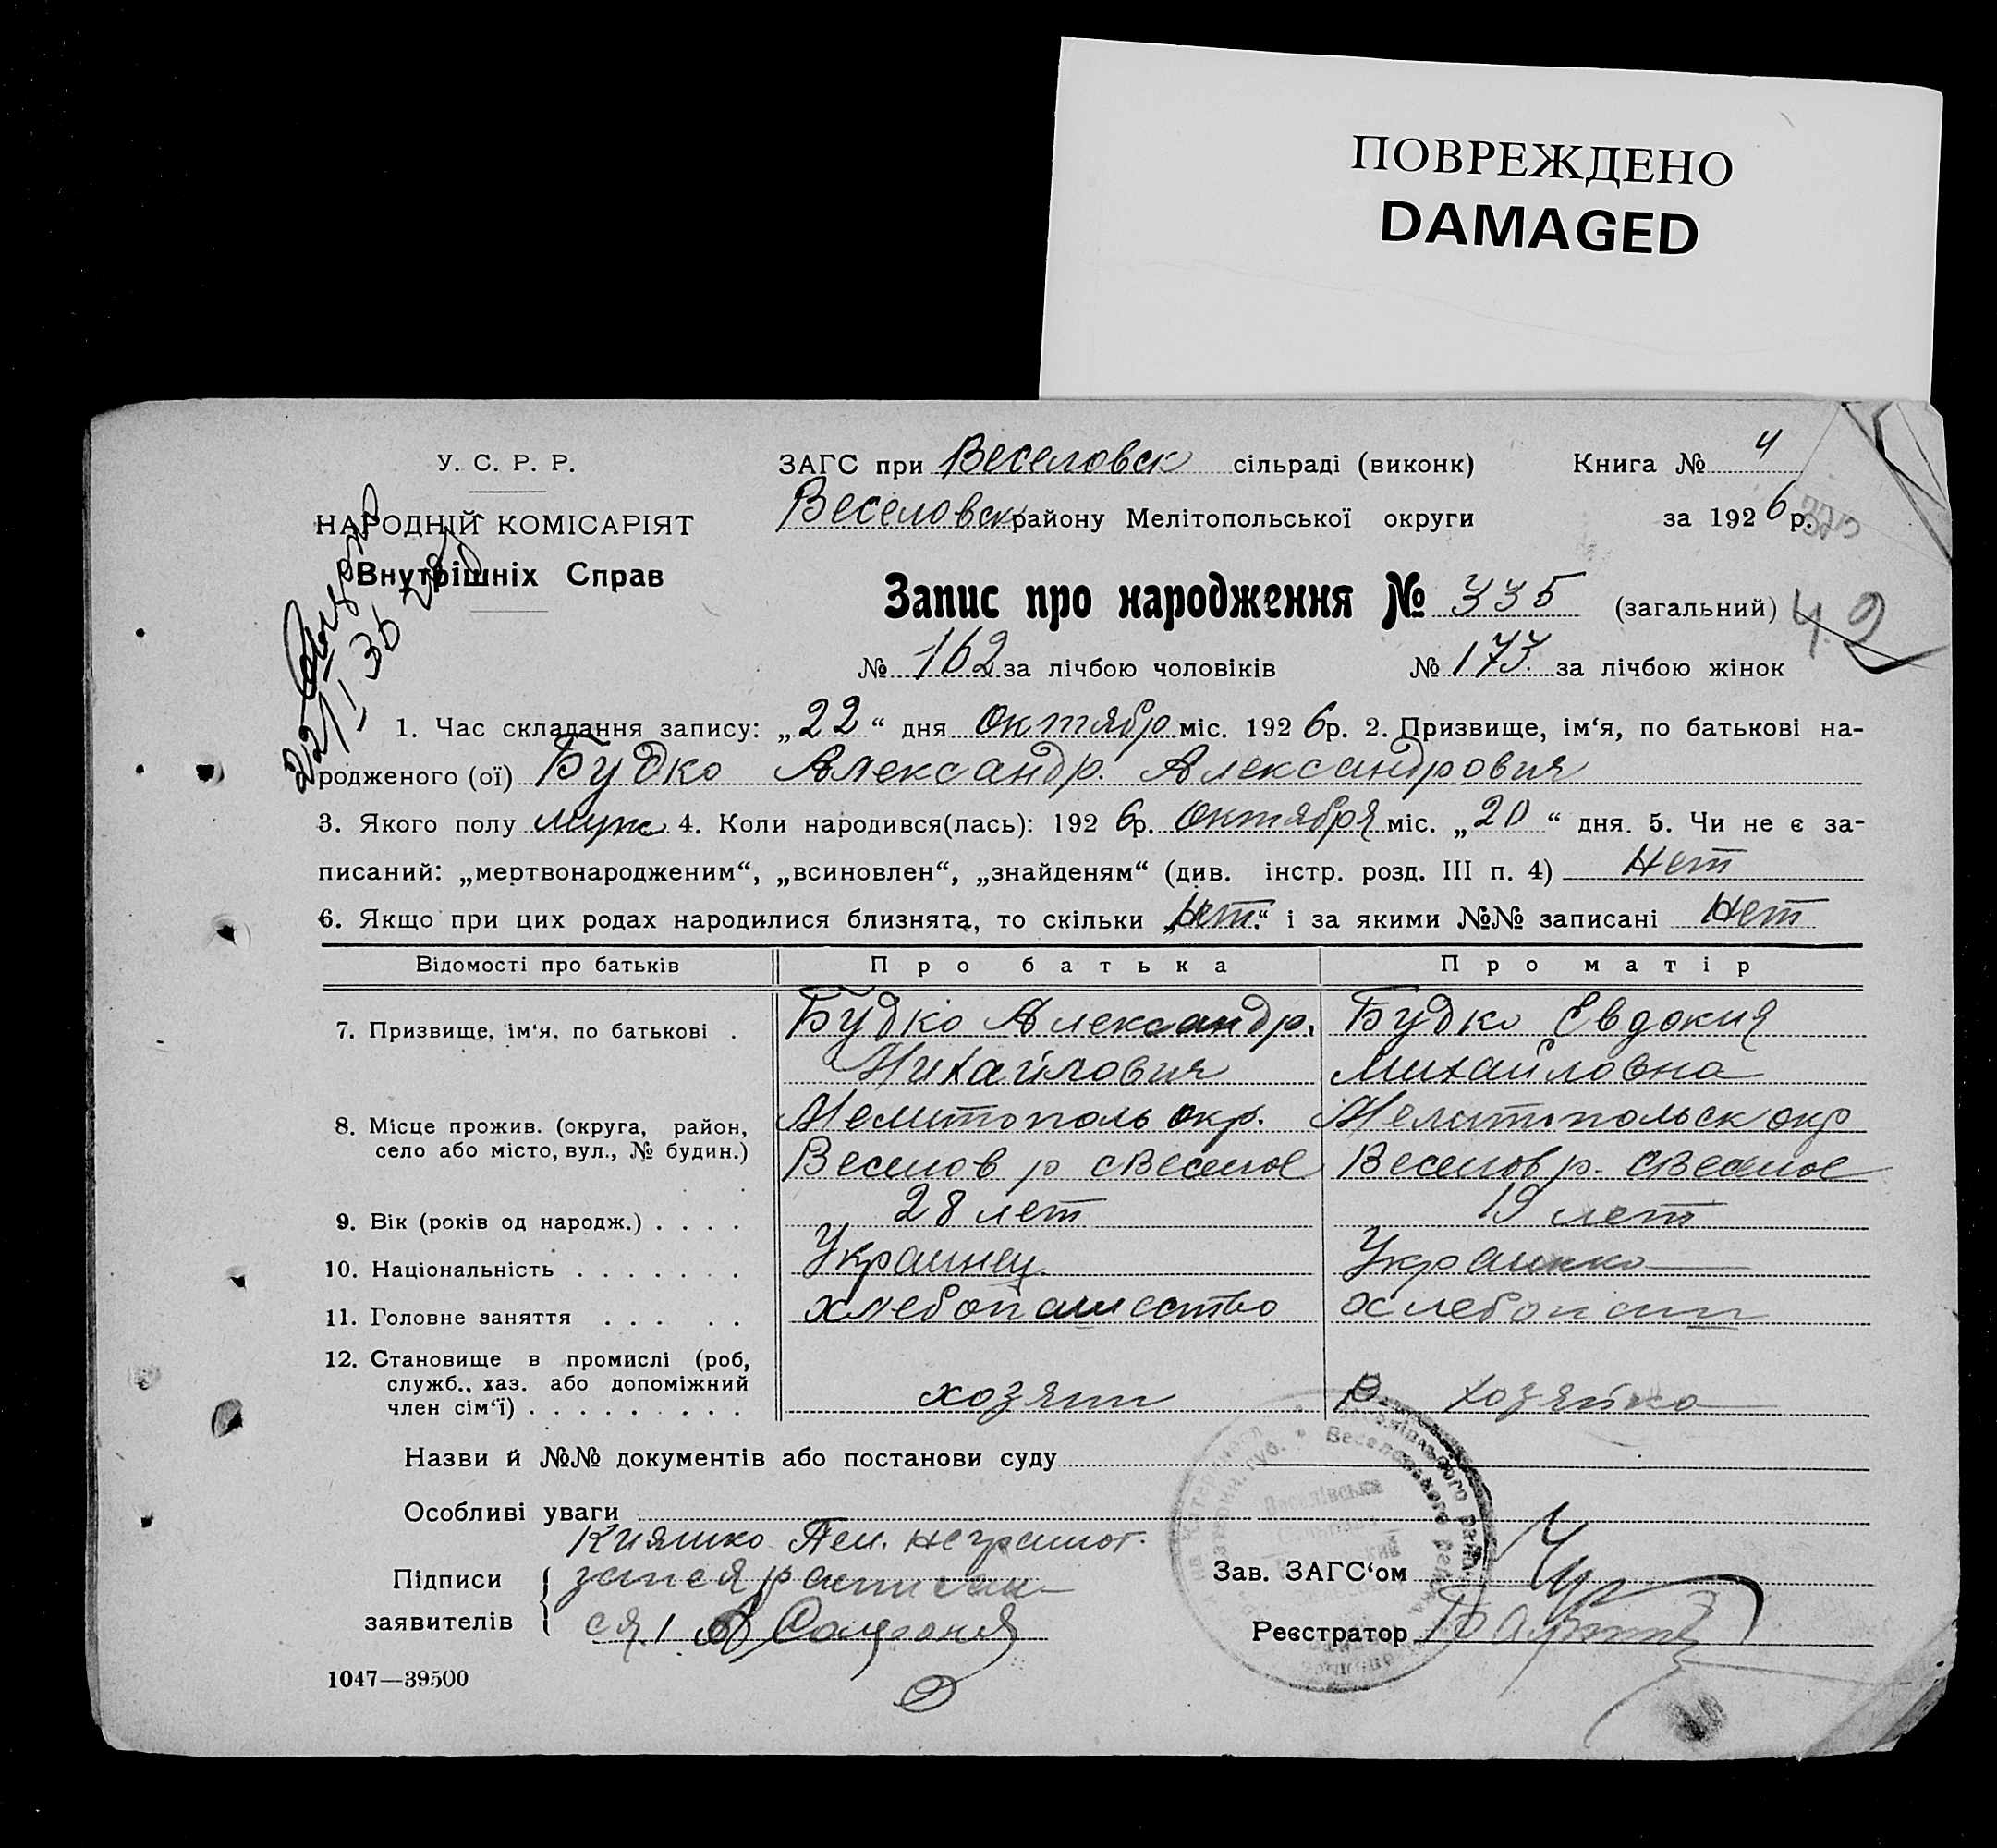 ПОВРЕЖДЕНО
DAMAGED
У. С. Р. Р.
НАРОДНІЙ КОМІСАРІЯТ
Внутрішніх Справ
ЗАГС при Веселовск сільраді (виконк) Книга № 4
Веселовск району Мелітопольської округи за 1926 р.
Запис про народження № 335 (загальний) 42
№ 162 за лічбою чоловіків № 173 за лічбою жінок
1. Час складання запису: „22“ дня Октябр міс. 1926 р. 2. Призвище, ім‘я, по батькові на-
родженого (ої) Будко Александр. Александрович
3. Якого полу муж. 4. Коли народився(лась): 1926 р. Октября міс. „20“ дня. 5. Чи не є за-
писаний: „мертвонародженим“, „всиновлен“, „знайденям“ (див. інстр. розд. III п. 4) Нет
6. Якщо при цих родах народилися близнята, то скільки „Нет.“ і за якими №№ записані Нет
Відомості про батьків Про батька Про матір
7. Призвище, ім‘я, по батькові . Будко Александр. Будко Евдокия
Михайлович Михайловна
8. Місце прожив. (округа, район, Мелитополь окр. Мелитопольск окр
село або місто, вул., № будин.) Веселов р с Веселое Веселов р. с Веселое
9. Вік (років од народж.) . . . . 28 лет 19 лет
10. Національність . . . . . . . Украинец Украинка
11. Головне заняття . . . . . хлебопашество хлебопаш
12. Становище в промислі (роб,
служб., хаз. або допоміжний
член сім‘ї) . . . . . . . . . хозяин р. хозяйка
Назви й №№ документів або постанови суду
Особливі уваги
Кияшко Пел. неграмот.
Підписи
заявителів
за нея расписал
ся!
Зав. ЗАГС‘ом
Реєстратор
1047—39500